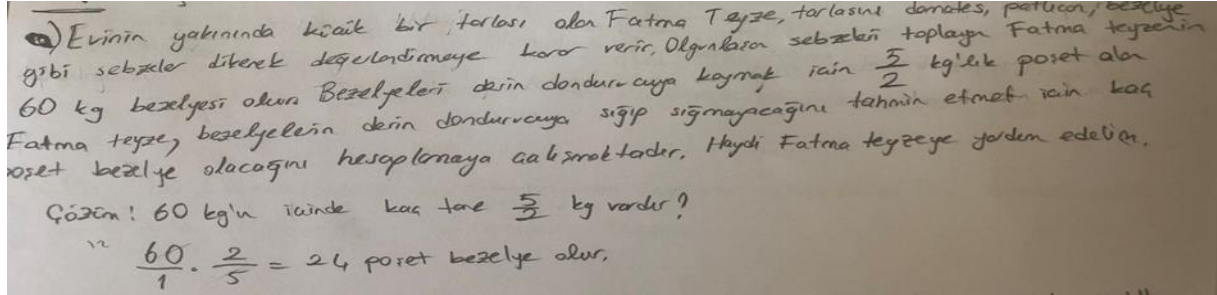 a) Evinin yakınında küçük bir tarlası olan Fatma Teyze, tarlasını domates, patlıcan, bezelye
gibi sebzeler dikerek değerlendirmeye karar verir. Olgunlaşan sebzeleri toplayan Fatma teyzenin
60 kg bezelyesi olur. Bezelyeleri derin dondurucuya koymak için 5/2 kg'lık poşet alan
Fatma teyze, bezelyelerin derin dondurucuya sığıp sığmayacağını tahmin etmek için kaç
poşet bezelye olacağını hesaplamaya çalışmaktadır. Haydi Fatma teyzeye yardım edelim.
Çözüm: 60 kg'ın içinde kaç tane 5/2 kg vardır?
12
60/1 . 2/5 = 24 poşet bezelye olur.